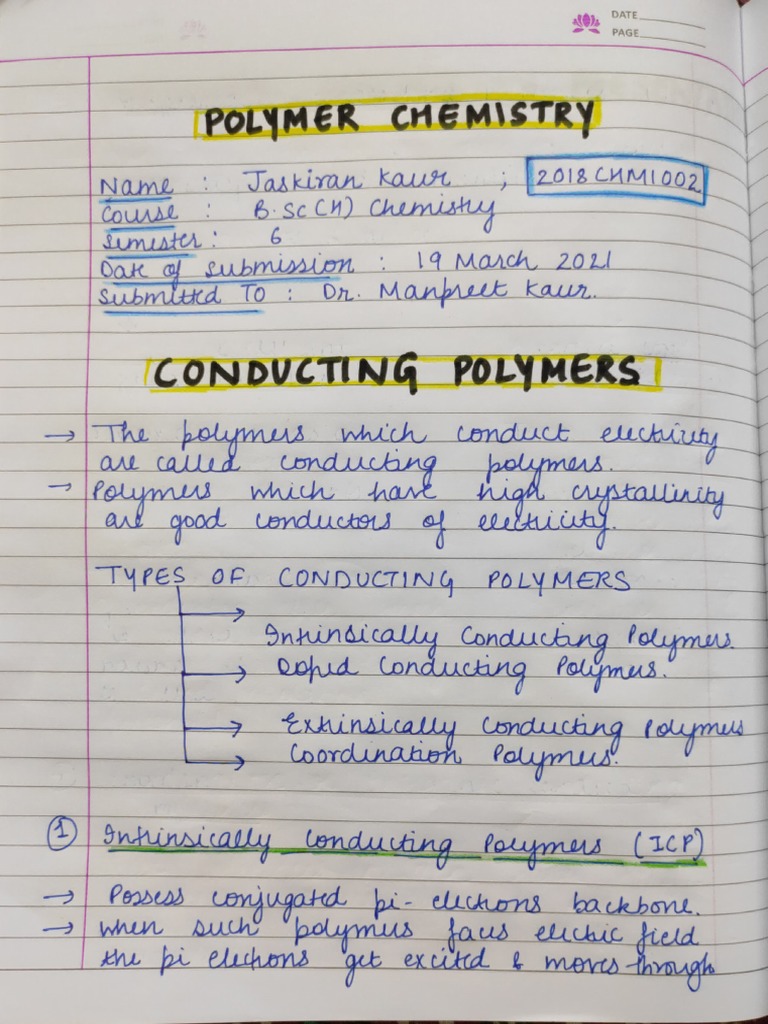 DATE
PAGE
POLYMER CHEMISTRY
Name : Jaskiran Kaur ; 2018CHM1002
Course : B.Sc(H) Chemistry
Semester : 6
Date of submission : 19 March 2021
Submitted TO : Dr. Manpreet Kaur.
CONDUCTING POLYMERS
→ The polymers which conduct electricity
are called conducting polymers.
→ Polymers which have high crystallinity
are good conductors of electricity.
TYPES OF CONDUCTING POLYMERS
→ Intrinsically Conducting Polymers.
→ Doped Conducting Polymers.
→ Extrinsically Conducting Polymers
→ Coordination Polymers.
① Intrinsically Conducting Polymers (ICP)
→ Possess conjugated pi-electrons backbone.
→ when such polymers faces electric field
the pi electrons get excited & moves through